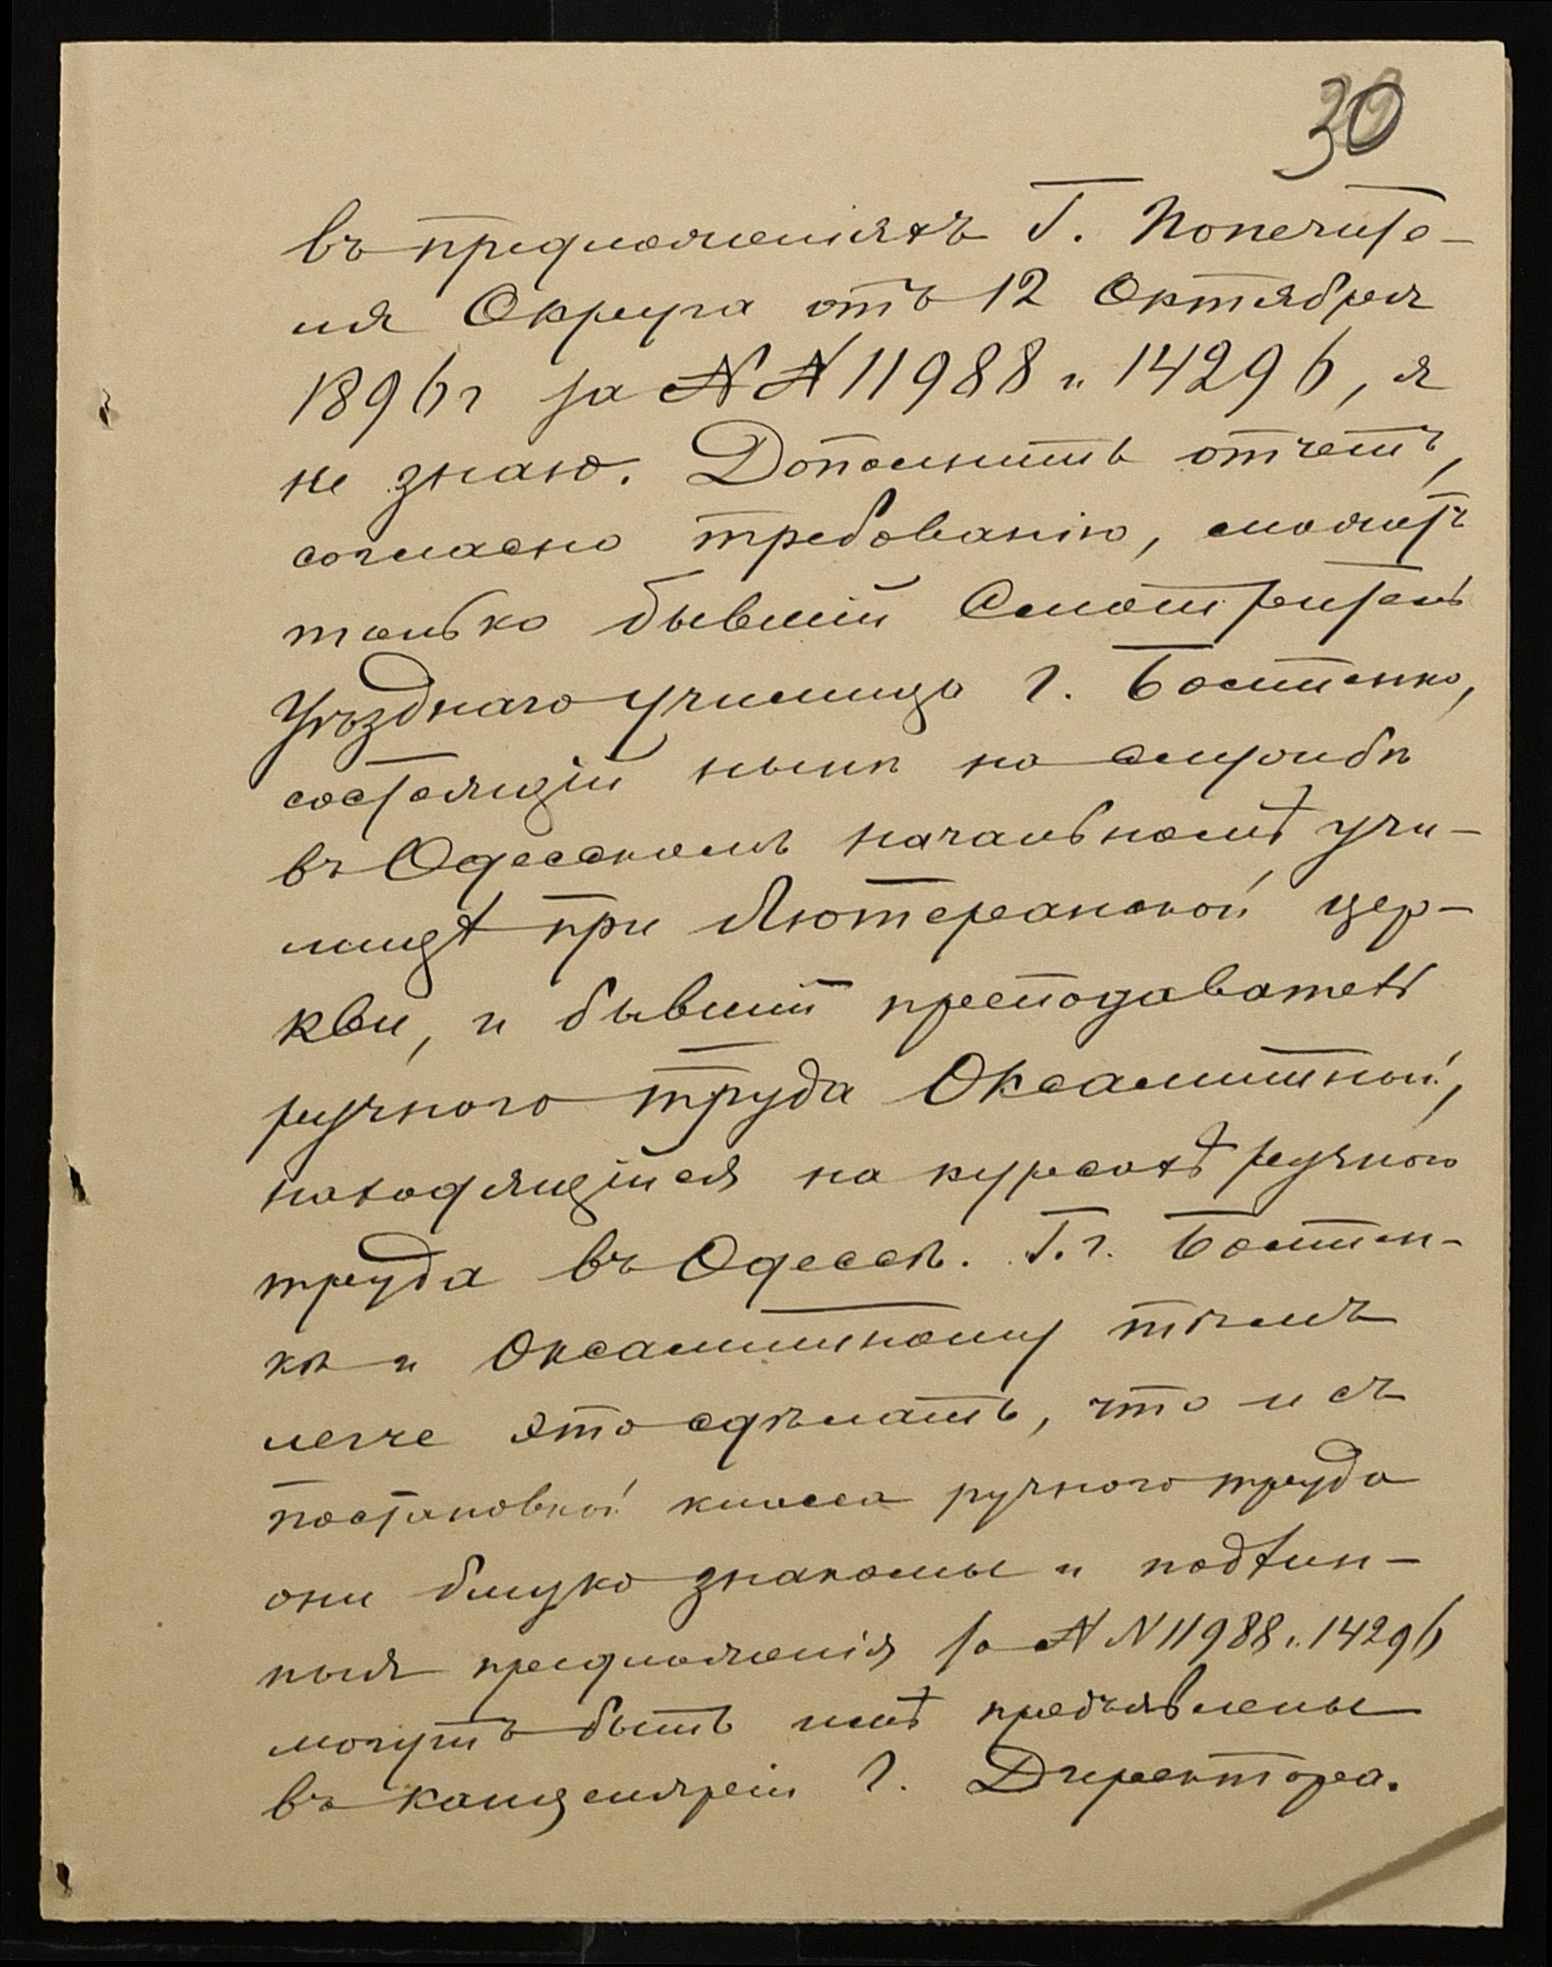 30
въ предложенiяхъ Г. Попечите-
ля Округа отъ 12 Октября
1896 г за № № 11988 и 14296, я
не знаю. Дополнить отчетъ,
согласно требованiю, можетъ
только бывшiй Смотритель
Уѣзднаго училища г.
состоящiй нынѣ на службѣ
въ Одесскомъ начальномъ учи-
лищѣ при Лютеранской цер-
кви, и бывшiй преподаватель
ручного труда Оксамитной,
находящiйся на курсахъ ручного
труда въ Одессѣ. Г.г.
ко и Оксамитному тѣмъ
легче это сдѣлать, что и съ
постановкой класса ручного труда
они близко знакомы и подлин-
ныя предложенiя за № № 11988 и 14296
могутъ быть имъ предъявлены
въ канцелярiи Г. Директора.